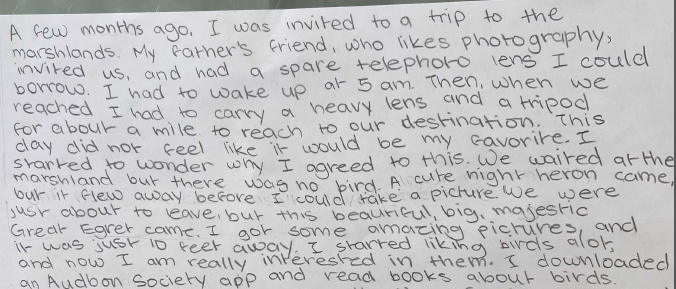 A few months ago, I was invited to a trip to the
marshlands. My father's friend, who likes photography,
invited us, and had a spare telephoto lens I could
borrow. I had to wake up at 5 am. Then, when we
reached I had to carry a heavy lens and a tripod
for about a mile to reach to our destination. This
day did not feel like it would be my favorite. I
started to wonder why I agreed to this. We waited at the
marshland but there was no bird. A cute night heron came,
but it flew away before I could take a picture. We were
just about to leave, but this beautiful, big, majestic
Great Egret came. I got some amazing pictures, and
it was just 10 feet away. I started liking birds alot,
and now I am really interested in them. I downloaded
an Audbon Society app and read books about birds.